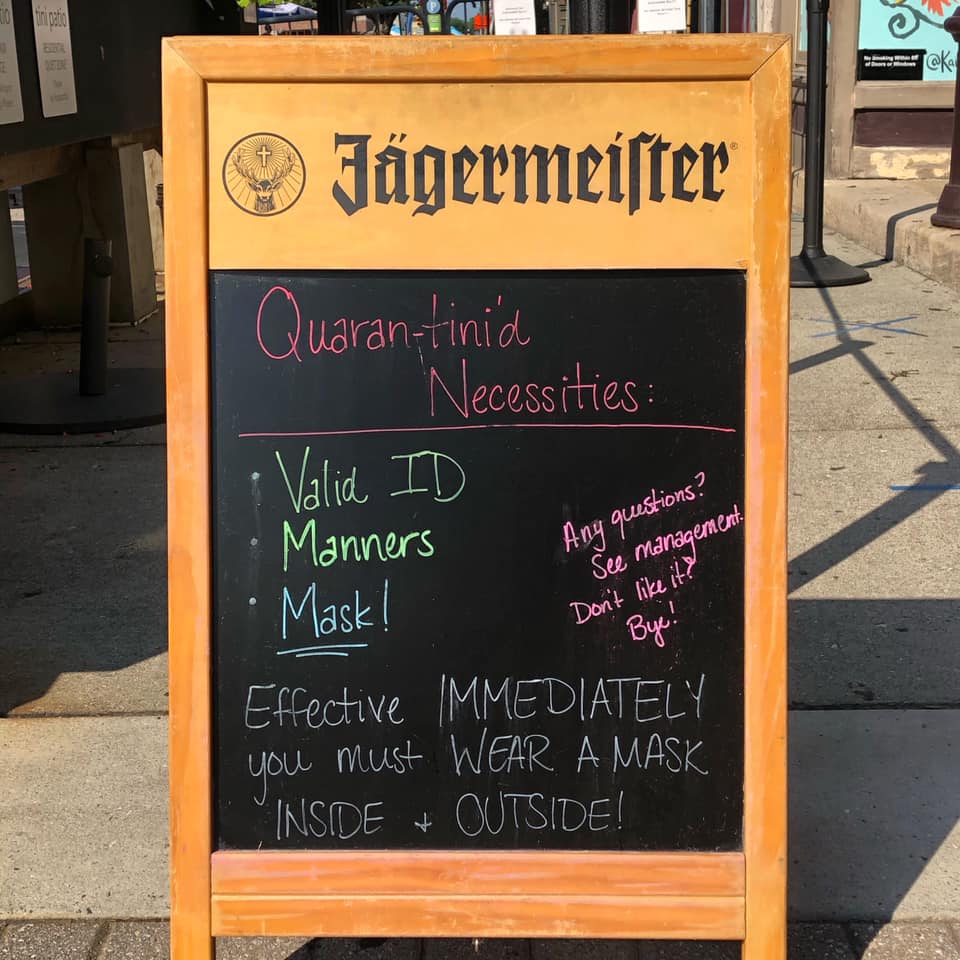 tini patio
RESIDENTIAL
QUIET ZONE
No Smoking Within 8ft
of Doors or Windows
Jägermeiſter®
Quaran-tini'd
Necessities:
• Valid ID
• Manners
• Mask!
Any questions?
See management.
Don't like it?
Bye!
Effective IMMEDIATELY
you must WEAR A MASK
INSIDE + OUTSIDE!